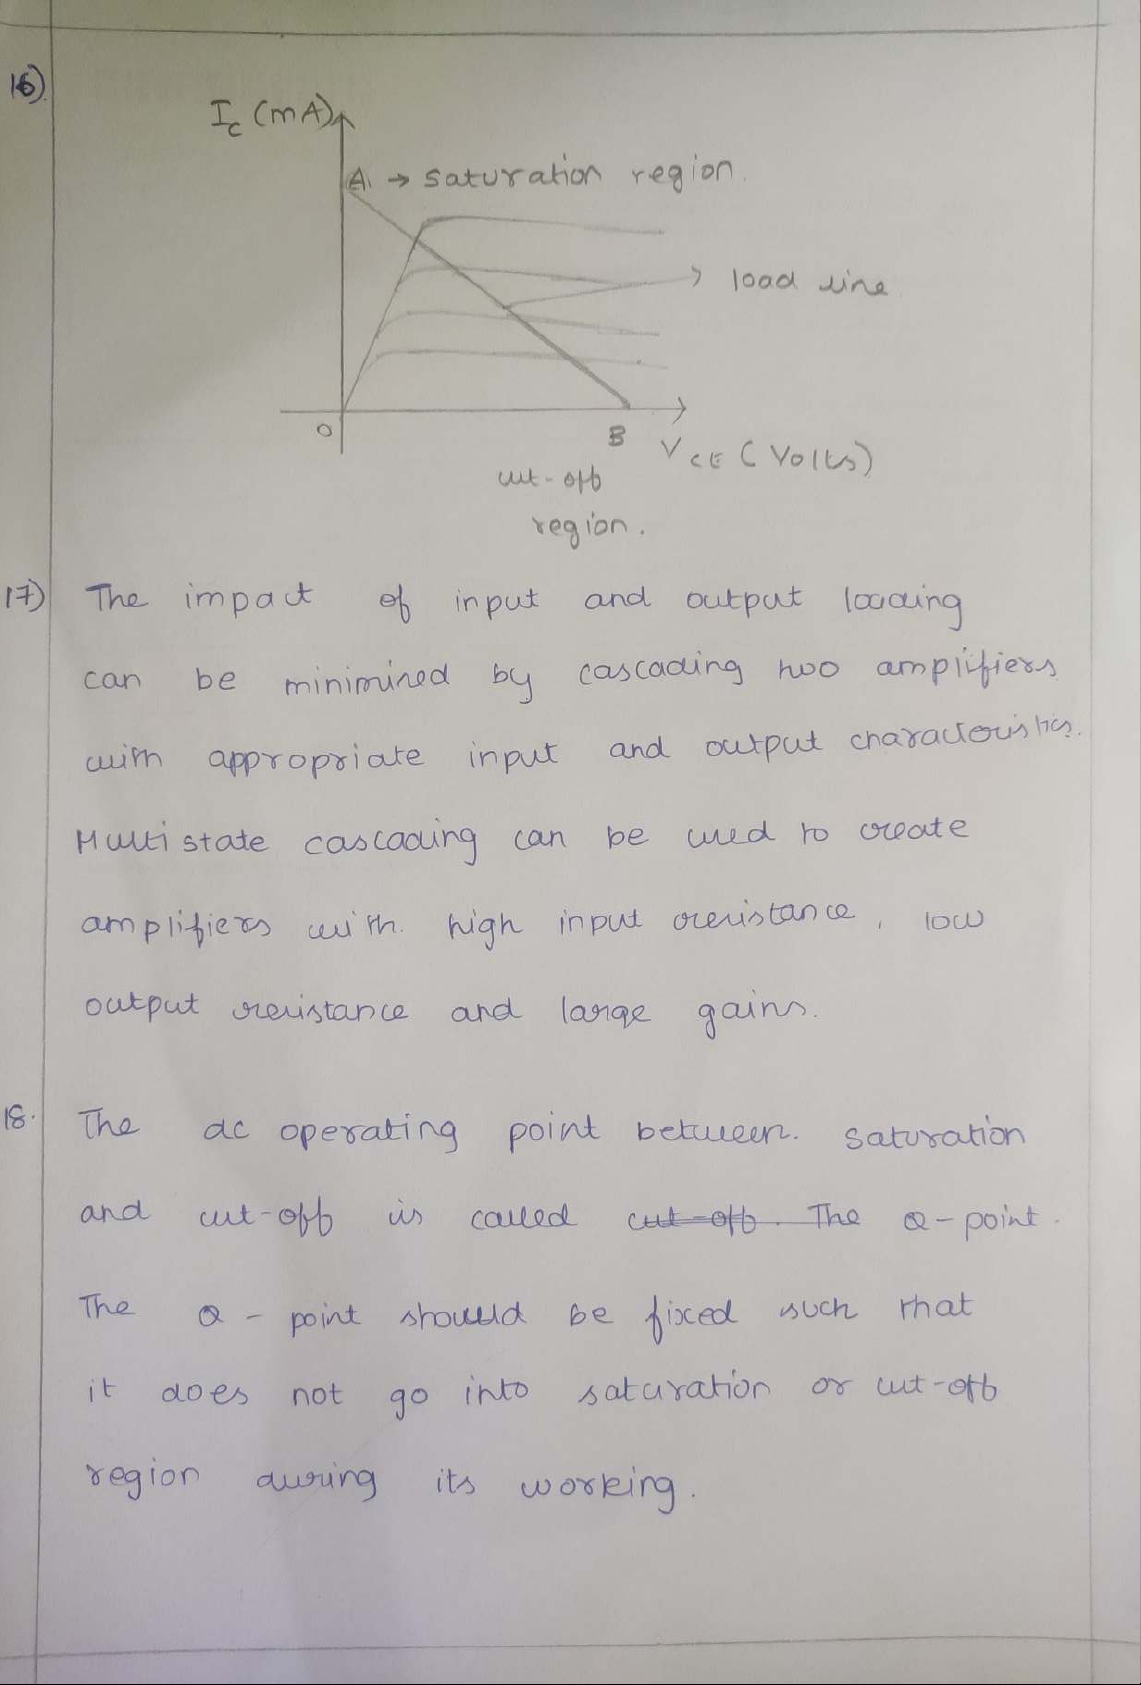 16)
I_C (mA)
A. → saturation region.
load line
O
B
V_CE (Volts)
cut-off
region.
17) The impact of input and output loading
can be minimized by cascading two amplifiers
with appropriate input and output characteristics.
Multistate cascading can be used to create
amplifiers with high input resistance, low
output resistance and large gains.
18. The dc operating point between. saturation
and cut-off is called cut-off. The Q-point.
The Q - point should be fixed such that
it does not go into saturation or cut-off
region during its working.